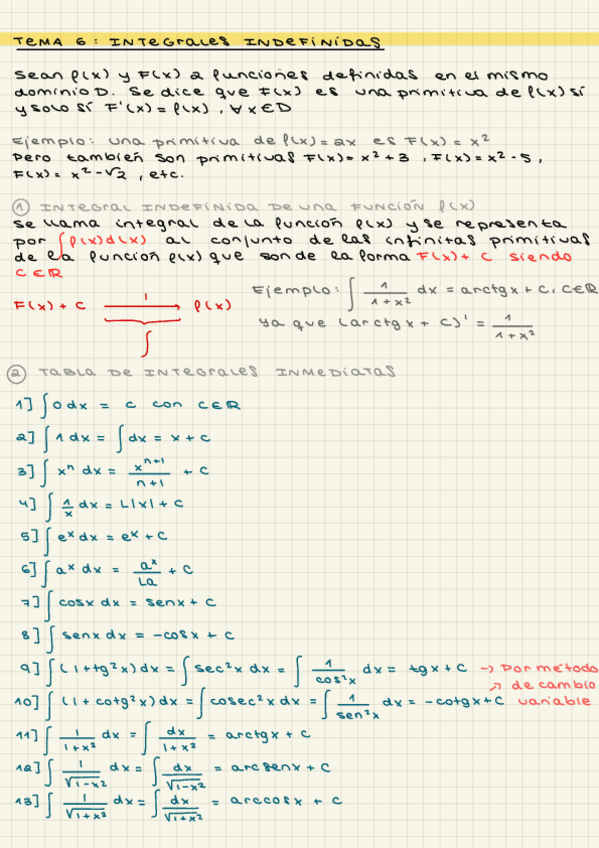 TEMA 6: INTEGRALES INDEFINIDAS
Sean f(x) y F(x) 2 funciones definidas en el mismo
dominio D. Se dice que F(x) es una primitiva de f(x) sí
y solo sí F'(x) = f(x), ∀x∈D
Ejemplo: una primitiva de f(x) = 2x es F(x) = x²
Pero también son primitivas F(x) = x² + 3, F(x) = x² - 5,
F(x) = x² - √2, etc.
① INTEGRAL INDEFINIDA DE UNA FUNCIÓN f(x)
Se llama integral de la función f(x) y se representa
por ∫f(x)d(x) al conjunto de las infinitas primitivas
de la función f(x) que son de la forma F(x) + C siendo
C∈ℝ
Ejemplo: ∫ 1/(1+x²) dx = arctgx + C, C∈ℝ
F(x) + C —'→ f(x)
∫
ya que (arctgx + C)' = 1/(1+x²)
② TABLA DE INTEGRALES INMEDIATAS
1] ∫0 dx = C con C∈ℝ
2] ∫1 dx = ∫dx = x + C
3] ∫xⁿ dx = xⁿ⁺¹/(n+1) + C
4] ∫ 1/x dx = L|x| + C
5] ∫eˣ dx = eˣ + C
6] ∫aˣ dx = aˣ/La + C
7] ∫cosx dx = senx + C
8] ∫senx dx = -cosx + C
9] ∫(1+tg²x) dx = ∫sec²x dx = ∫ 1/cos²x dx = tgx + C → Por método
de cambio
10] ∫(1+cotg²x) dx = ∫cosec²x dx = ∫ 1/sen²x dx = -cotgx + C ↗ variable
11] ∫ 1/(1+x²) dx = ∫ dx/(1+x²) = arctgx + C
12] ∫ 1/√(1-x²) dx = ∫ dx/√(1-x²) = arcsenx + C
13] ∫ 1/√(1+x²) dx = ∫ dx/√(1+x²) = arccosx + C